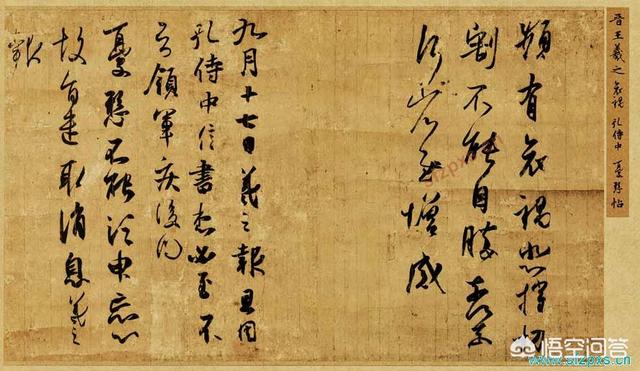 晉王羲之哀禍 孔侍中 憂懸帖
頻有哀禍悲摧切
割不能自勝奈何奈
何省慰增感
九月十七日羲之報且因
孔侍中信書想必至不
知領軍疾後問
憂懸不能須臾忘心
故旨遣取消息羲之
報
悟空问答